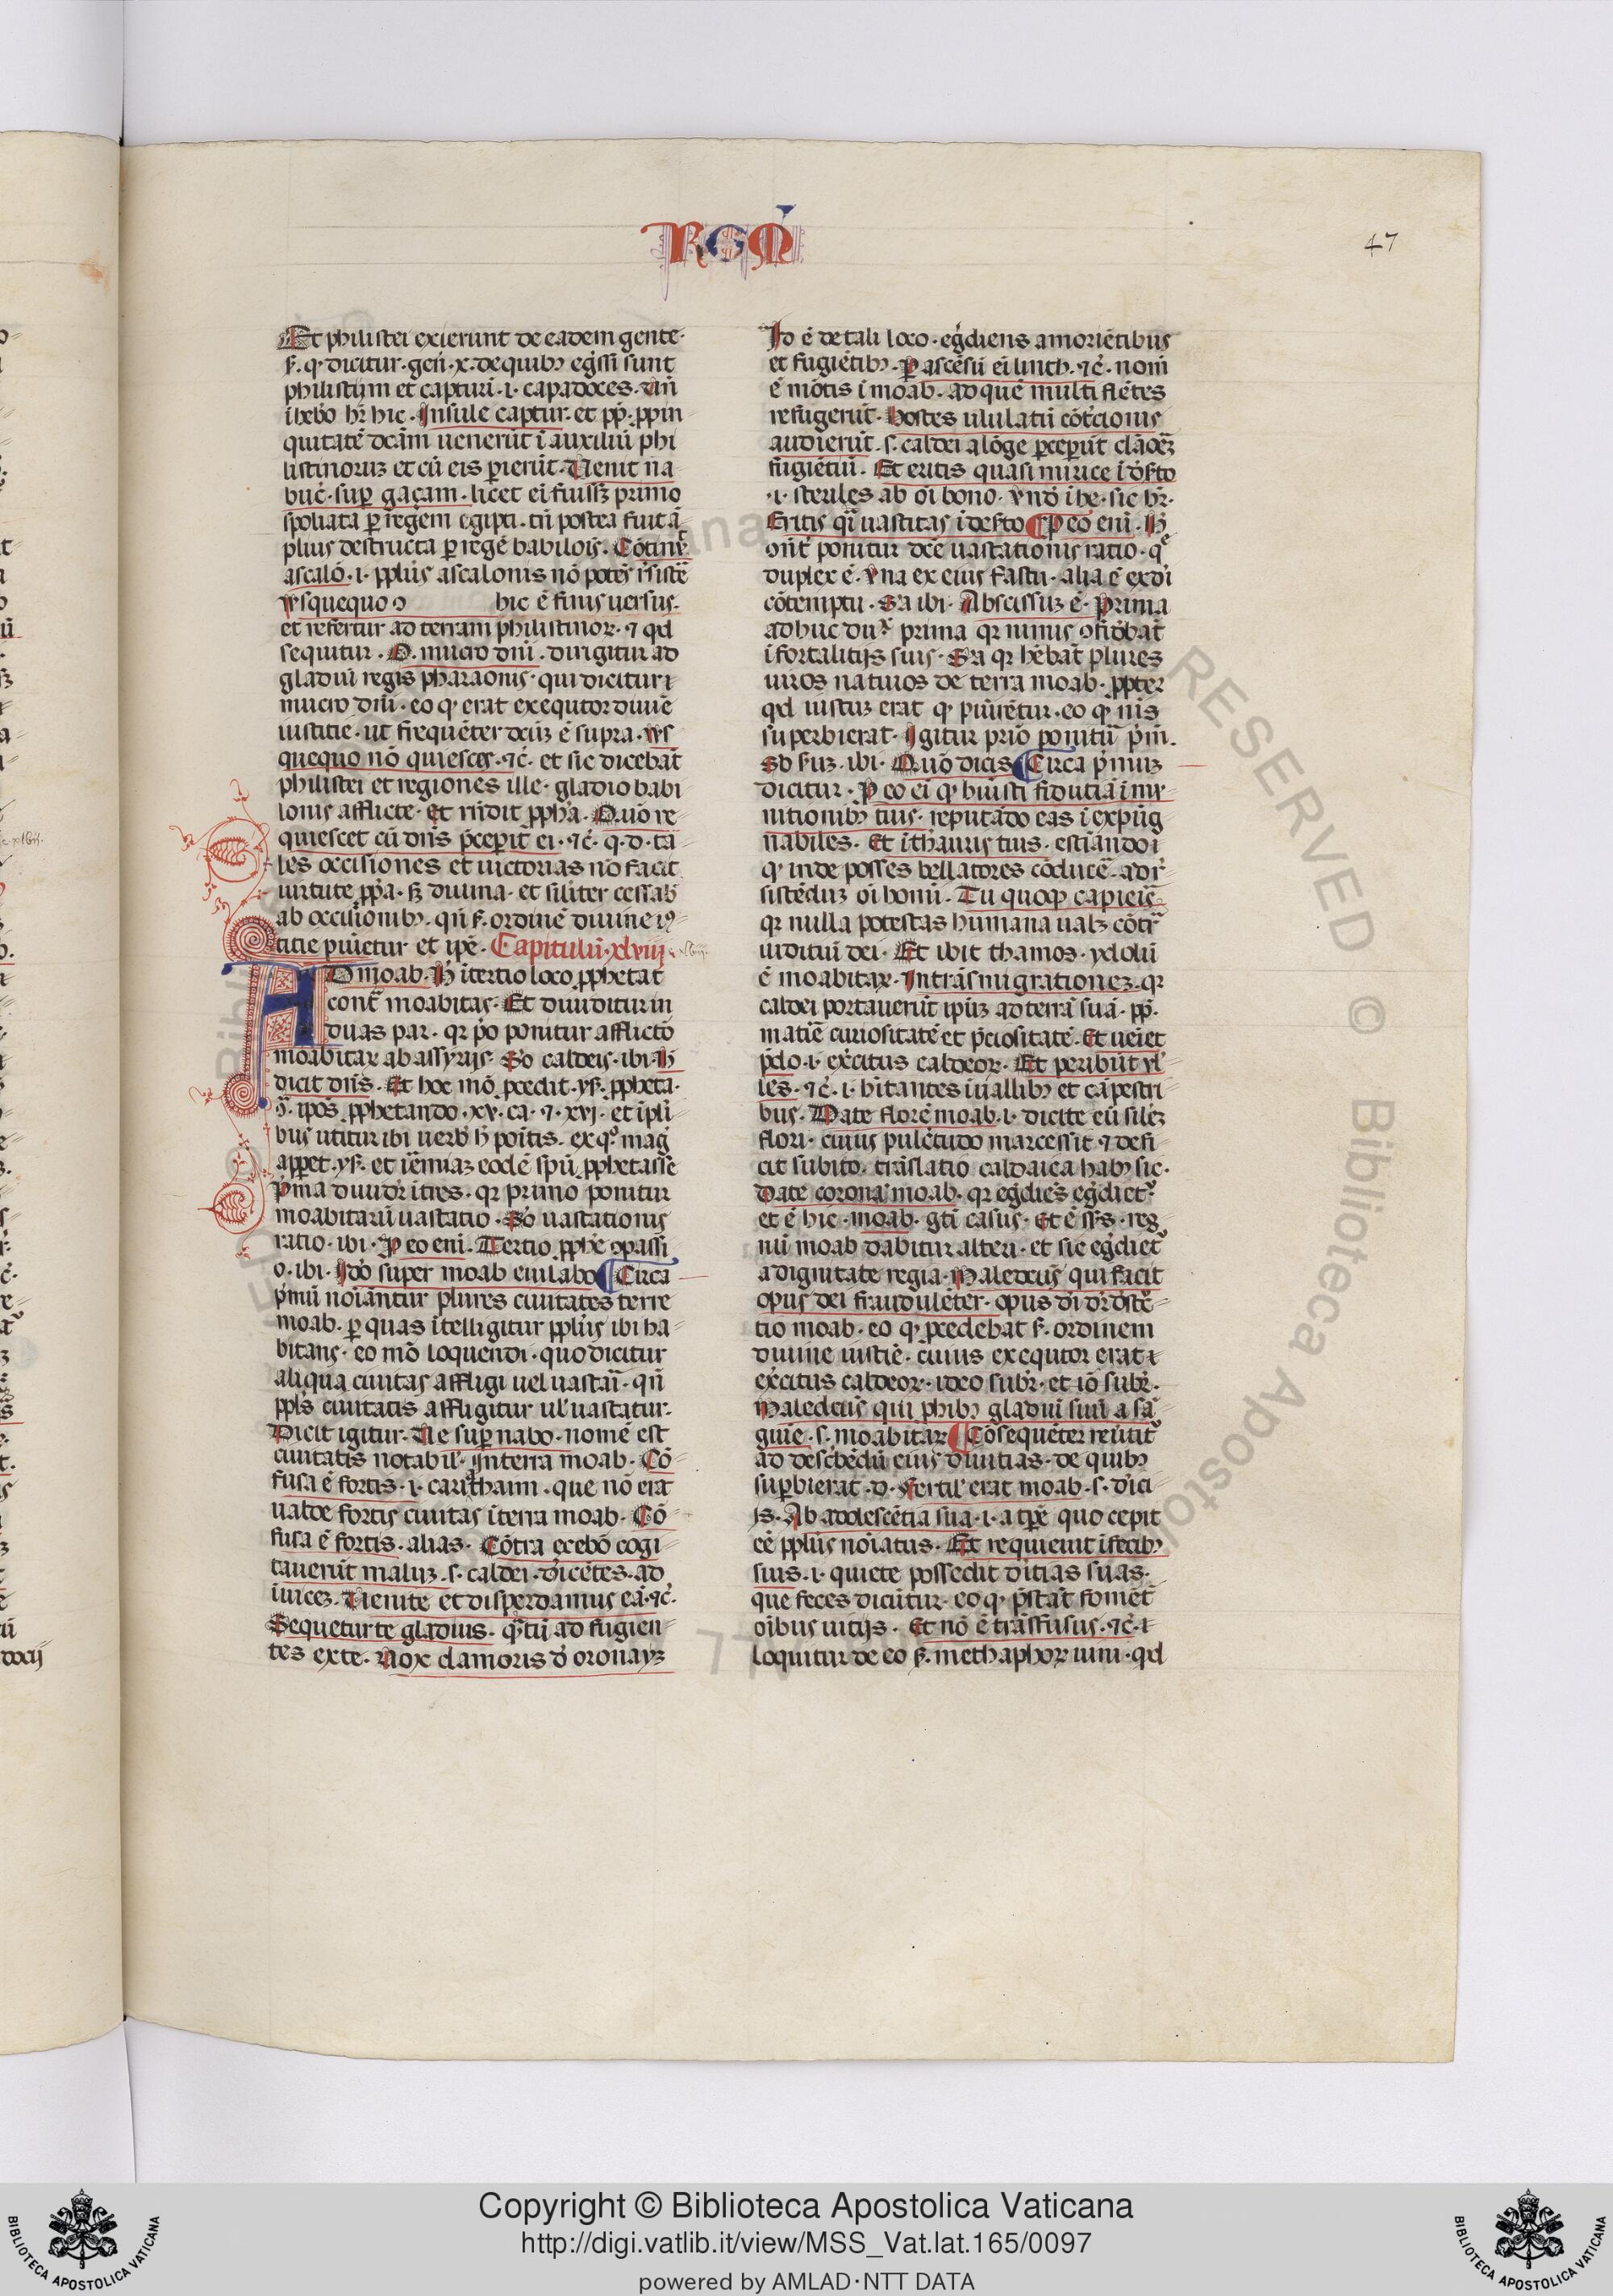 RGM̄
47
Et philistei exierunt de eadem gente·
ẜ. ꝙ dicitur· gen̄· x· de quibꝫ eg̃ssi sunt
philistijm et capturi· i· capadoces· Un̄
ī hebo hr̄ hic· Insule captur̄· et ꝓp̄ ꝓpin
quitatē dc̄am ueneru̅t ī auxiliū phi
listinorum et cū eis ꝑieru̅t· Uenit na
buc̄· suꝑ gaçam· licet ei̅ fuissꝫ primo
spoliata ꝑ regem egipti· tn̄ postea fuit ā
plius destructa ꝑ regē babilois̄· Cōtinꝰ
ascalō· i· ppl̅us ascalonis nō potes r̄sistē
Usquequo hic ē finis uersus·
et refertur ad terram philistinoꝝ· ⁊ qd̅
sequitur· O· mucro dn̅i· dirigitur ad
gladiū regis pharaonis· qui dicitur
mucro dn̅i· eo ꝙ erat exequtor diuīe
iustitie· ut frequēter dc̅uꝫ ē supra· Us
quequo nō quiesces· ⁊c̄· et sic dicebāt
philistei et regiones ille· gladio babi
lonis afflicte· Et rn̄dit ꝓph̄a· Quō re
quiescet cū dn̅s p̄ceperit ei· ⁊c̄· q· d· ta
les occisiones et uictorias nō facit
uirtute ꝓp̄a· sꝫ diuina· et siliter cessab̅
ab occisionibꝫ· qn̄ ẜ· ordinē diuine iꝰ
titie puīetur et ip̄e· Capitulū· xlviij·
AD moab· H̄ ī tertio loco ꝓphetat
cont̄ moabitas· Et diuiditur in
duas par̄· qr̄ p̄o ponitur afflicto
moabitaꝝ ab assyrijs· So caldeis· ibi· H̄
dicit dn̅s· Et hoc mō ꝓcedit· ys̄· ꝓpheta·
ꝯ̄ ip̄os ꝓphetando· xv· ca· ⁊· xvj· et ip̄li
bus utitur ibi uerb̅ h̄ poitis̄· ex qͦ mag̅
apꝑet· ys̄· et ie̅miaꝫ eodē spū ꝓphetasse
p̄ma diuidr̄ ī tres· qr̄ primo ponitur
moabitarū uastatio· So uastationis
ratio· ibi· P eo eni̅· Tertio ꝓphē ꝯpassi
o· ibi· Ido̅ super moab eiulabo Circa
p̄mū noi̅antur plures ciuitates terre
moab· ꝑ quas ītelligitur ppl̅us ibi ha
bitans· eo mō loquendi· quo dicitur
aliqua ciuitas affligi uel uastari̅· qn̄
ppl̅s ciuitatis affligitur ul̅ uastatur·
Dicit igitur· Ue suꝑ nabo· nomē est
ciuitatis notabil̅· In terra moab· Cō
fusa ē fortis· i· cariathaim· que nō erā
ualde fortis ciuitas ī terra moab· Cō
fusa ē fortis· alias· Cōtra esebō cogi
tauerūt maluꝫ· s· caldei· dicētes· ad
iuiceꝫ· Uenite et disperdamus eā· ⁊c̄·
Sequetur te gladius· q̄tū ad fugien
tes ex te· Uox clamoris d̅ oronayꝫ
Io̅ ē de tali loco· eg̃diens a moriētibus
et fugiētibꝫ· P ascēsū ei̅ luith· ⁊c̄· nom̄
ē mōtis ī moab· ad quē multi flētes
refugerūt· hostes ululatū cōtr̄cionis
audierūt· s· caldei a lōge ꝑceperūt clādeꝫ
fugiētiū· Et eritis quasi mirice ī d̅ẜto
·i· steriles ab oi̅ bono· Vnd̅ ī he· sic hr̄·
Eritis qi̅ uastitas ī deẜto P eo eni̅· H̄
on̄r ponitur dc̅e uastationis ratio· qͤ
duplex ē· Vna ex eius fastu· alia ē ex di̅
cōtemptu· Sa̅ ibi· Abscissuꝫ ē· Prima
adhuc duꝝ prima qr̄ nimis ꝯfid̅bat
ī fortalitijs suis· Sa̅ qr̄ hēbat plures
uiros natiuos de terra moab· ꝓpter
qd̅ iustuꝫ erat ꝙ punirētur· eo ꝙ nīs
superbierat· Igitur prīo ponitū p̄m̅.
Sb̅ ẜuꝫ· ibi· Quō dicis Circa p̄muꝫ
dicitur· P eo ei̅ ꝙ h̄uisti fiduciā ī mu
nitionibꝫ tuis· reputādo eas ī expūg
nabiles· Et ī thauris tuis· estīando
ꝙ inde posses bellatores cōducē· ad r̄
sistēduꝫ oi̅ homī· Tu quoqꝫ capieris̄
qr̄ nulla potestas humana ualꝫ cōtr̄
iuditiū dei· Et ibit thamos· ydolū
ē moabitaꝝ· In trāsmigrationeꝫ· qr̄
caldei portauerūt ip̄uꝫ ad terrā suā· ꝓp̄·
matie̅ curiositatē et p̄ciositatē· Et ueīet
p̄do· i· exe̅citus caldeoꝝ· Et peribūt ul̅
les· ⁊c̄· i· h̅itantes ī uallibꝫ et cāpestri
bus· Date florē moab· i· dicite eū silēꝫ
flori· cuius pulcītudo marcessit ⁊ defi
cit subito· trāslatio caldaica habꝫ sic·
Date coronā moab· qr̄ eg̃diēs eg̃dietꝰ
et ē hic· moab· gti̅ casus· Et ē sn̄s· reg̅
nū moab dabitur alteri· et sic eg̃dietꝰ
a dignitate regia· Maledc̅us qui facit
opus dei fraudulēter· opus di̅ dr̄ d̅stc̅
tio moab· eo ꝙ ꝓcedebat ẜ· ordinem
diuine iustie̅· cuius exequtor erat
exe̅citus caldeoꝝ· ideo subr̄· et io̅ subr̄·
Maledc̅us qui ꝓhibꝫ gladiū suū a sā
guīe· s· moabitaꝝ Cōsequēter reūtitꝰ
ad desc̅bēdū eius diuitias· de quibꝫ
suꝑbierat· d· Fertil̅ erat moab· s· diui
js· Ab adolescētia sua· i· a tp̄e quo cepit
ēe ppl̅us noi̅atus· Et requieuit ī fecibꝫ
suis· i· quiete possedit diti̅as suas·
que feces dicūtur· eo ꝙ p̄stāt fomēt̄
oi̅bus uitijs· Et nō ē trāsfusus· ⁊c̄·
loquitur de eo ẜ· methaphoꝝ uini· qd̅
Copyright © Biblioteca Apostolica Vaticana
http://digi.vatlib.it/view/MSS_Vat.lat.165/0097
powered by AMLAD·NTT DATA